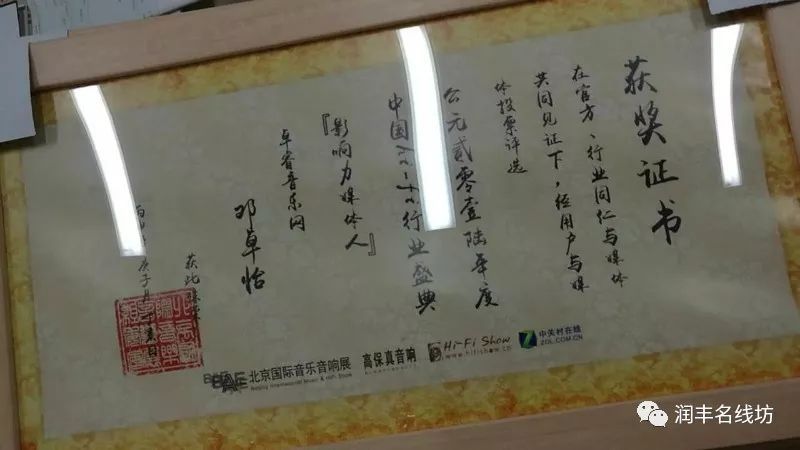 获奖证书
在官方、行业同仁与媒体
共同见证下，经用户与媒
体投票评选
公元贰零壹陆年度
中国Hi-Fi行业盛典
『影响力媒体人』
卓睿音乐网
邓卓怡
获此
庚子月
北京国际音乐音响展
Beijing International Music & HiFi Show
高保真音响
Hi-Fi Show
www.hifishow.cn
Z 中关村在线
ZOL.COM.CN
润丰名线坊